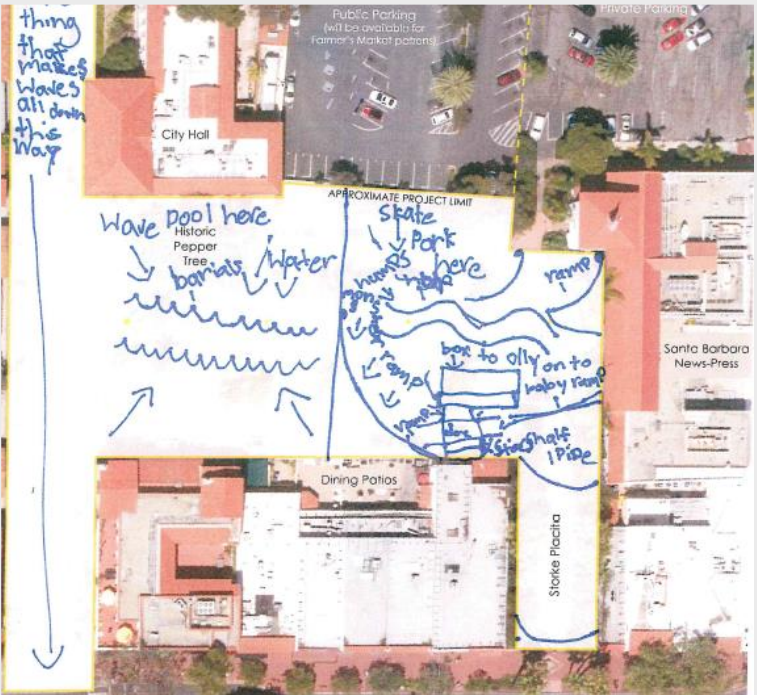 thing
that
makes
waves
all down
this
way
Public Parking
(will be available for
Farmer's Market patrons)
Private Parking
City Hall
APPROXIMATE PROJECT LIMIT
Wave pool here
Historic
Pepper
Tree
barials
Water
skate
Park
here
humps
ramp
monster ramp
box to olly on to
baby ramp
ramp
box
stars
half
Pipe
Santa Barbara
News-Press
Dining Patios
Storke Placita